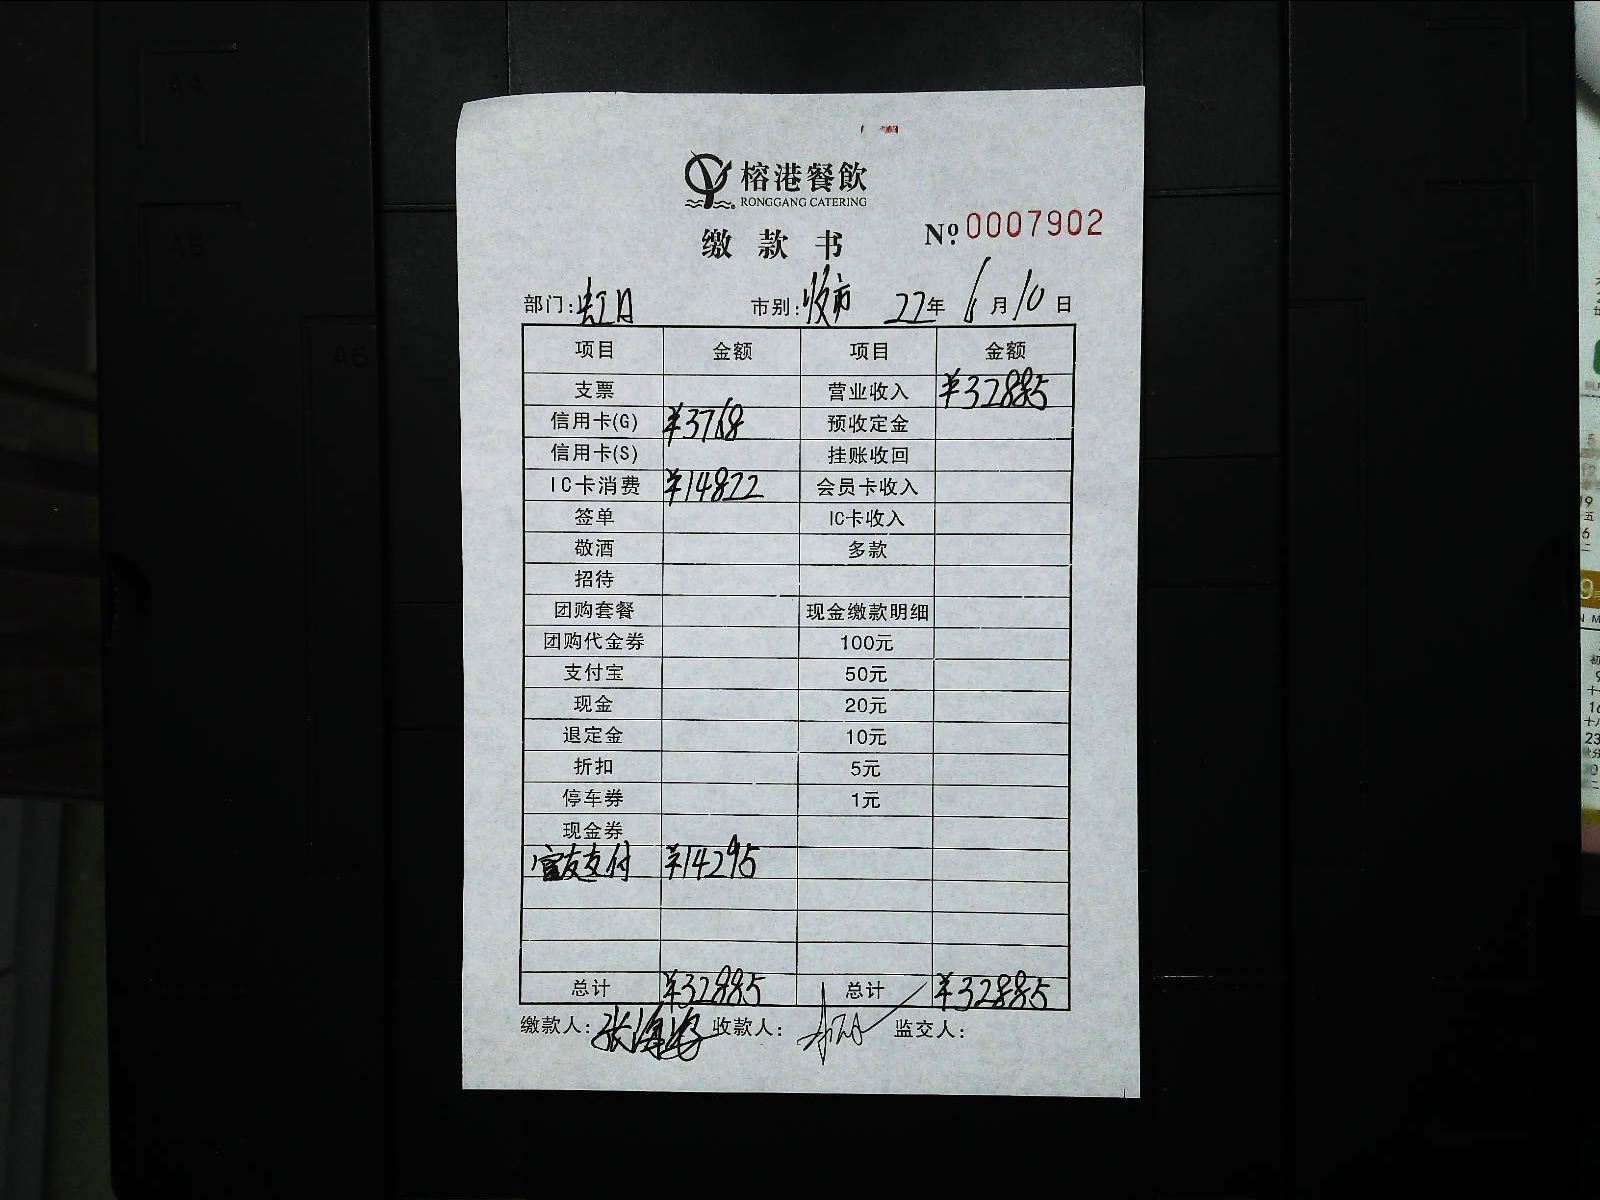 榕港餐飲
RONGGANG CATERING
缴款书 Nº 0007902
部门: 虹日 市别: 收市 22年 6月10日
项目 金额 项目 金额
支票 营业收入 ¥32885
信用卡(G) ¥3768 预收定金
信用卡(S) 挂账收回
IC卡消费 ¥14822 会员卡收入
签单 IC卡收入
敬酒 多款
招待
团购套餐 现金缴款明细
团购代金券 100元
支付宝 50元
现金 20元
退定金 10元
折扣 5元
停车券 1元
现金券
支付 ¥14295
总计 ¥32885 总计 ¥32885
缴款人: 张海 收款人: 监交人:
A6